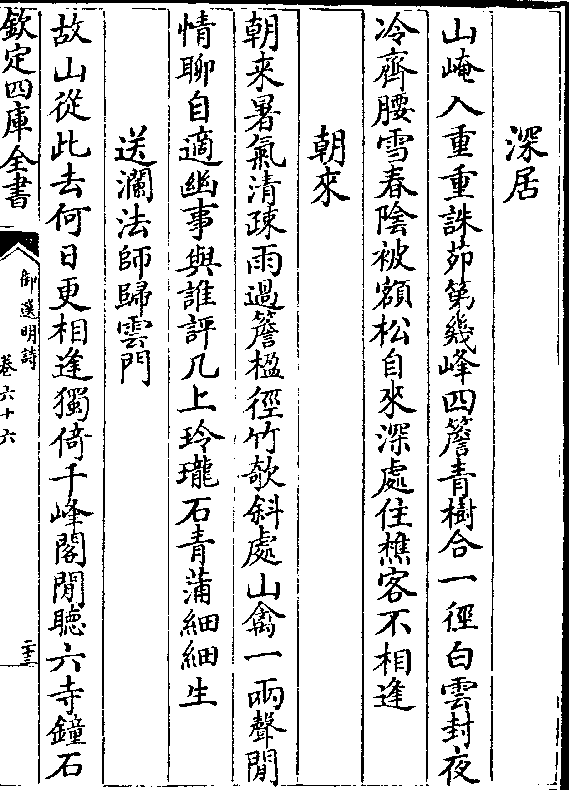 深居
山崦入重重誅茆第幾峰四簷青樹合一徑白雲封夜
冷齊腰雪春陰被額松自來深處住樵客不相逢
朝來
朝来暑氣清疎雨過簷楹徑竹欹斜處山禽一兩聲閒
情聊自適幽事與誰評几上玲瓏石青蒲細細生
送瀾法師歸雲門
故山從此去何日更相逢獨倚千峰閣閒聽六寺鐘石
欽定四庫全書
御選明詩
卷六十六
二十三